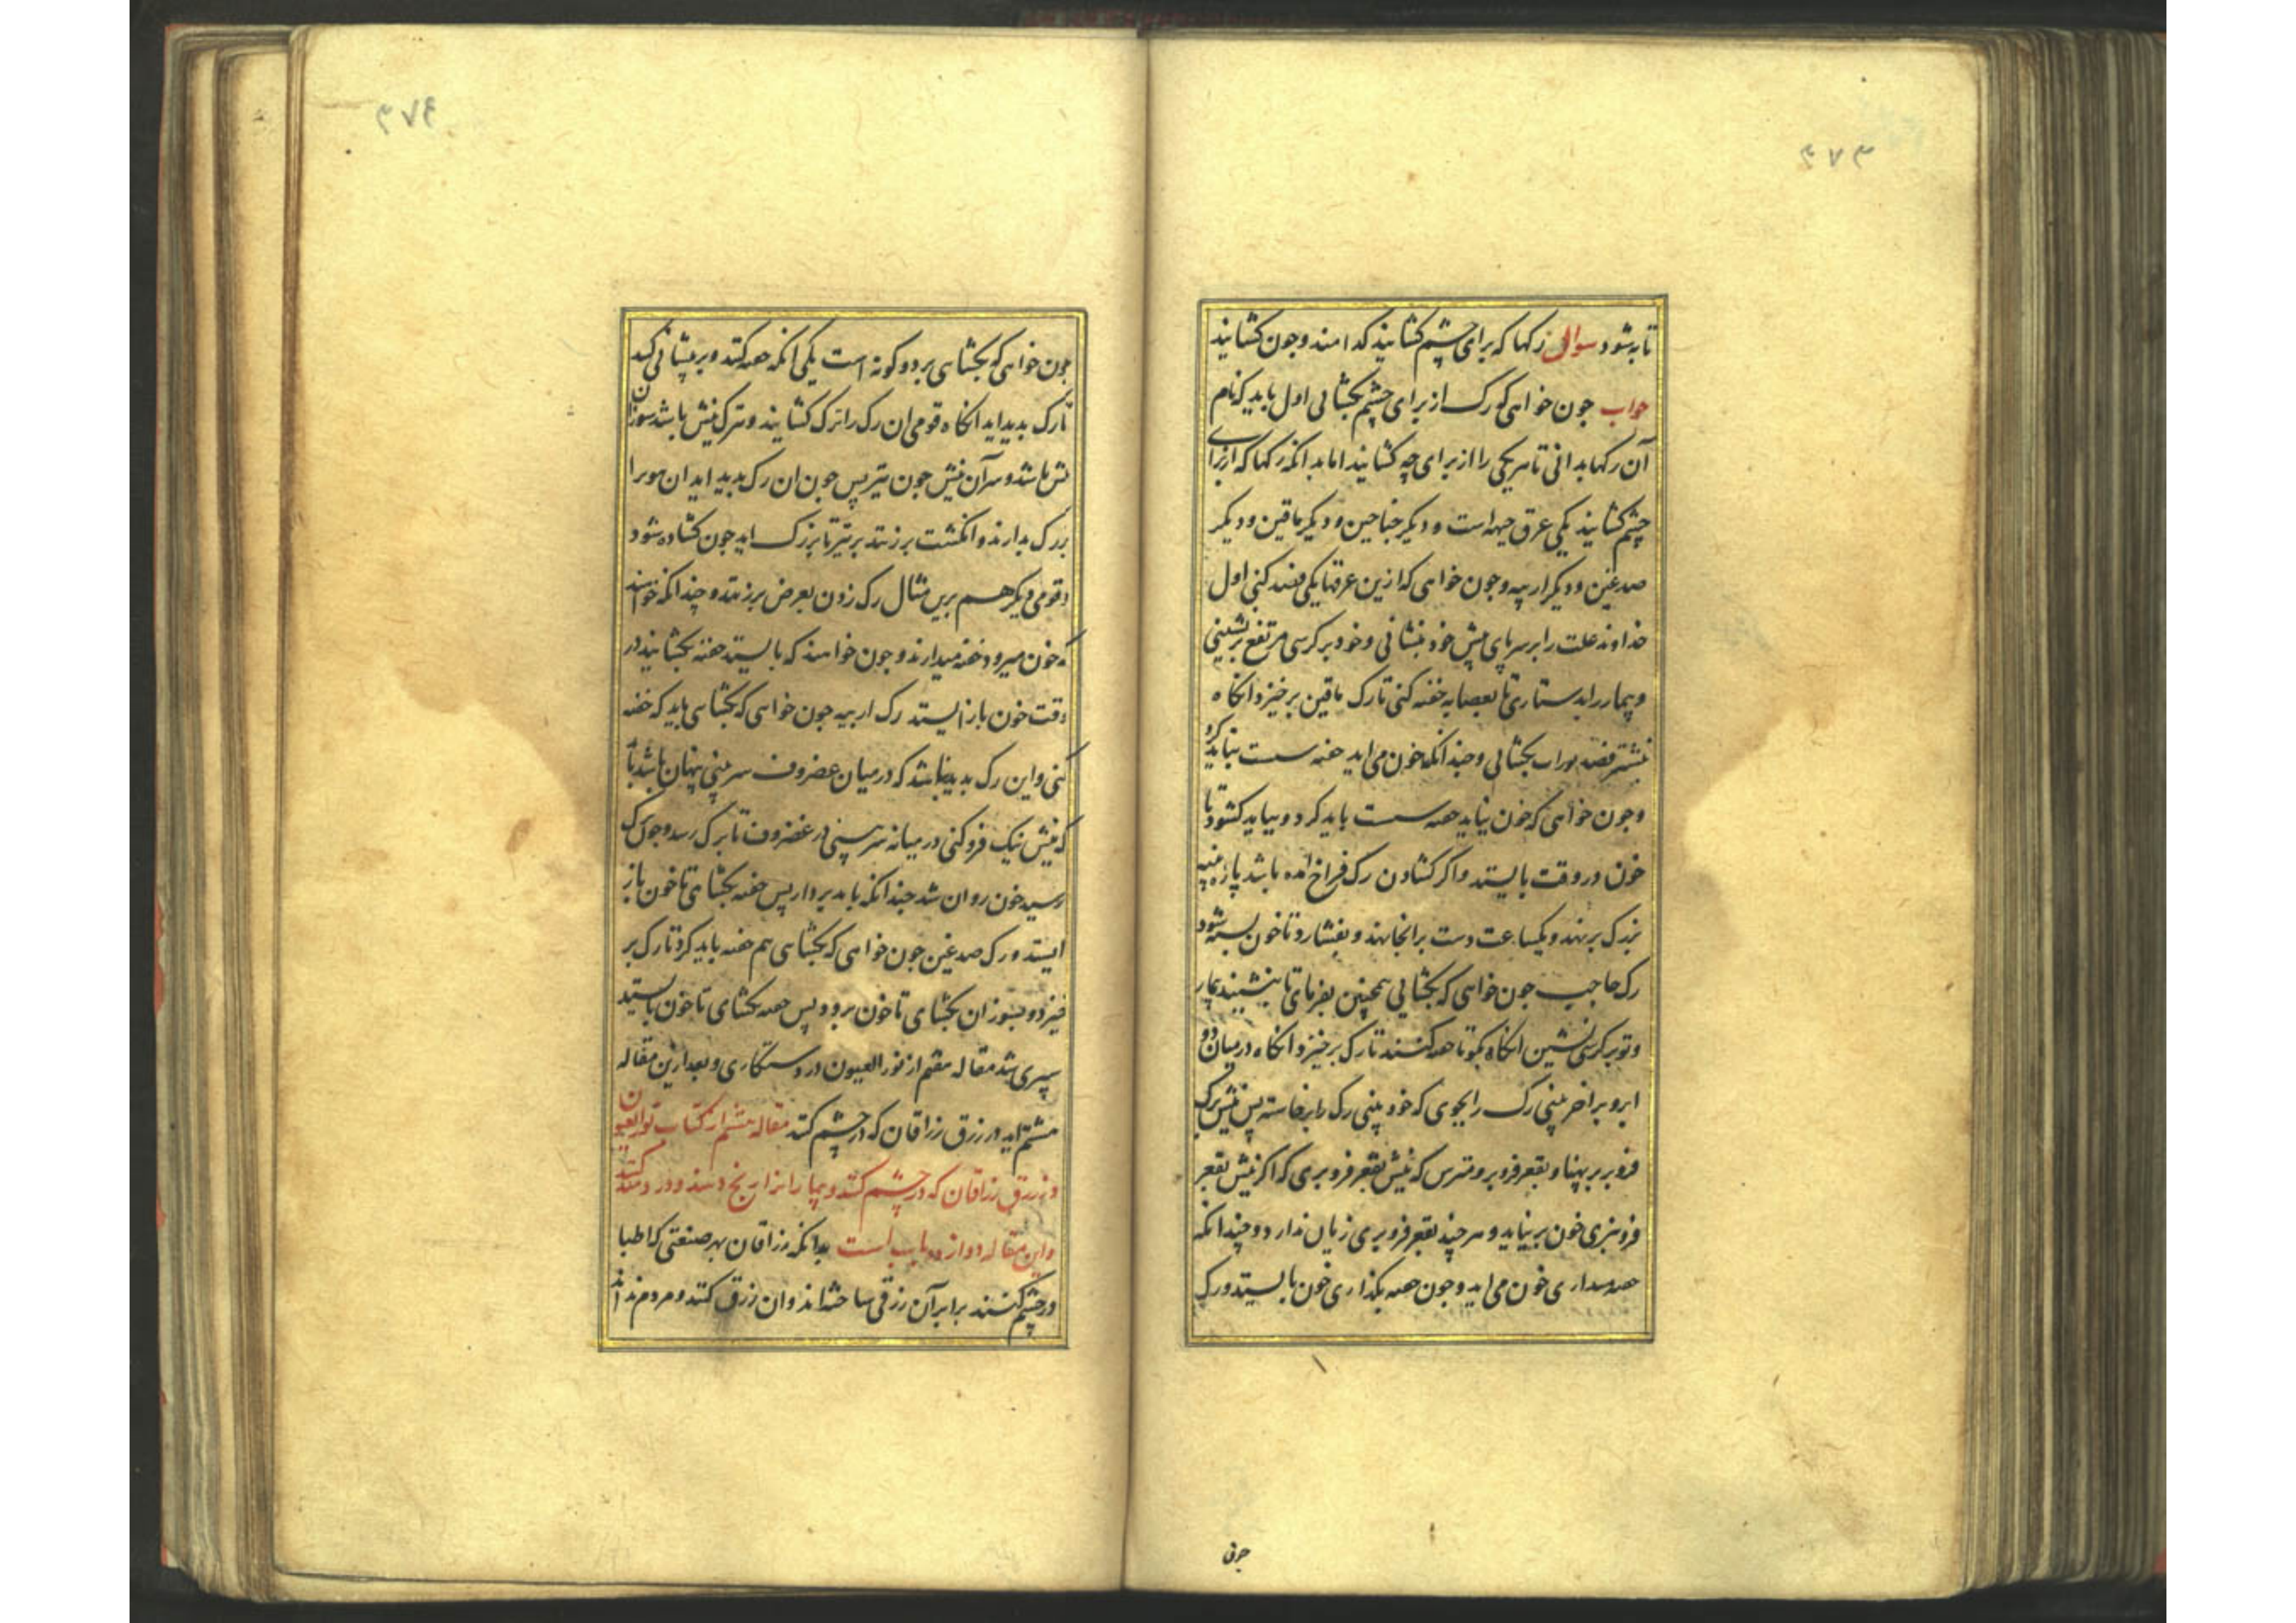 ۲۷۳
تا به شود سوال رکها که برای چشم کشایند کدامند و چون کشایند
جواب چون خواهی که رک از برای چشم بکشائی اول باید که نام
آن رکها بدانی تا هر یکی را از برای چه کشایند اما بدانکه رکها که از برای
چشم کشایند یکی عرق جبهه است و دیکر جناحین و دیکر ماقین و دیکر
صدغین و دیکر ارنبه و چون خواهی که ازین عرقها یکی فصد کنی اول
خداوند علت را بر سر پای پیش خود بنشانی و خود بر کرسی مرتفع بنشینی
و بیمار را بدستاری تا بعصابه خفه کنی تا رک ماقین برخیزد انکاه
بنشتر فصد بکشائی و چندانکه خون می اید خفه سست نباید کرد
و چون خواهی که خون نیاید خفه سست باید کرد و بباید کشود تا
خون در وقت بایستد و اکر کشادن رک فراخ امده باشد پاره پنبه
بزرک برنهد و یکساعت دست برانجا نهد و بفشارد تا خون بسته شود
رک حاجب چون خواهی که بکشائی همچنین بفرمای تا بنشیند بیمار
و تو بر کرسی نشین انکاه بکو تا خفه کنند تا رک برخیزد انکاه در میان دو
ابرو بر اخر بینی رک را بجوی که خود بینی رک را برخاسته پس نیش بزرک
فرو بر بر پهنا و بقعر فرو بر و مترس که نیش بقعر فرو بری که اکر نیش بقعر
فرو نبری خون بر نیاید و هر چند بقعر فرو بری زیان ندارد و چندانکه
خفه میداری خون می اید و چون خفه بکذاری خون بایستد و رک
چون
۲۷۴
چون خواهی که بکشای بر دو کونه است یکی انکه خفه کنند و بر پیشانی کنند
تا رک بدید اید انکاه قومی ان رک را بترک کشایند و ترک نیش باشد سوزن
نیش باشد و سر آن نیش چون تیر پس چون ان رک بدید اید ان موبرا
بر رک بدارند و انکشت بر زنند بر تیر تا بر رک اید چون کشاده شود
و قومی دیکر هم برین مثال رک زدن بعرض بر زنند و چندانکه خواهند
که خون میرود خفه میدارند و چون خواهند که بایستد خفه بکشایند در
وقت خون باز ایستد رک ارنبه چون خواهی که بکشای باید که خفه
کنی و این رک بدید نباشد که در میان غضروف سر بینی پنهان باشد باید
که نیش نیک فرو کنی در میانه سر بینی در غضروف تا برک رسد و چون برک
رسید خون روان شد چندانکه باید بردار پس خفه بکشای تا خون باز
ایستد و رک صدغین چون خواهی که بکشای هم خفه باید کرد تا رک بر
خیزد و بسوزن بکشای تا خون برود پس خفه بکشای تا خون بایستد
سپری شد مقاله هفتم از نور العیون در دستکاری و بعد ازین مقاله
هشتم اید در زرق زراقان که در چشم کنند مقاله هشتم از کتاب نور العیون
در زرق زراقان که در چشم کنند و بیمار را از ان رنج دهند و درد کنند
و این مقاله دوازده باب است بدانکه زراقان بهر صنعتی که اطبا
در چشم کنند برابر آن زرقی ساخته اند و ان زرق کنند و مردم ندانند